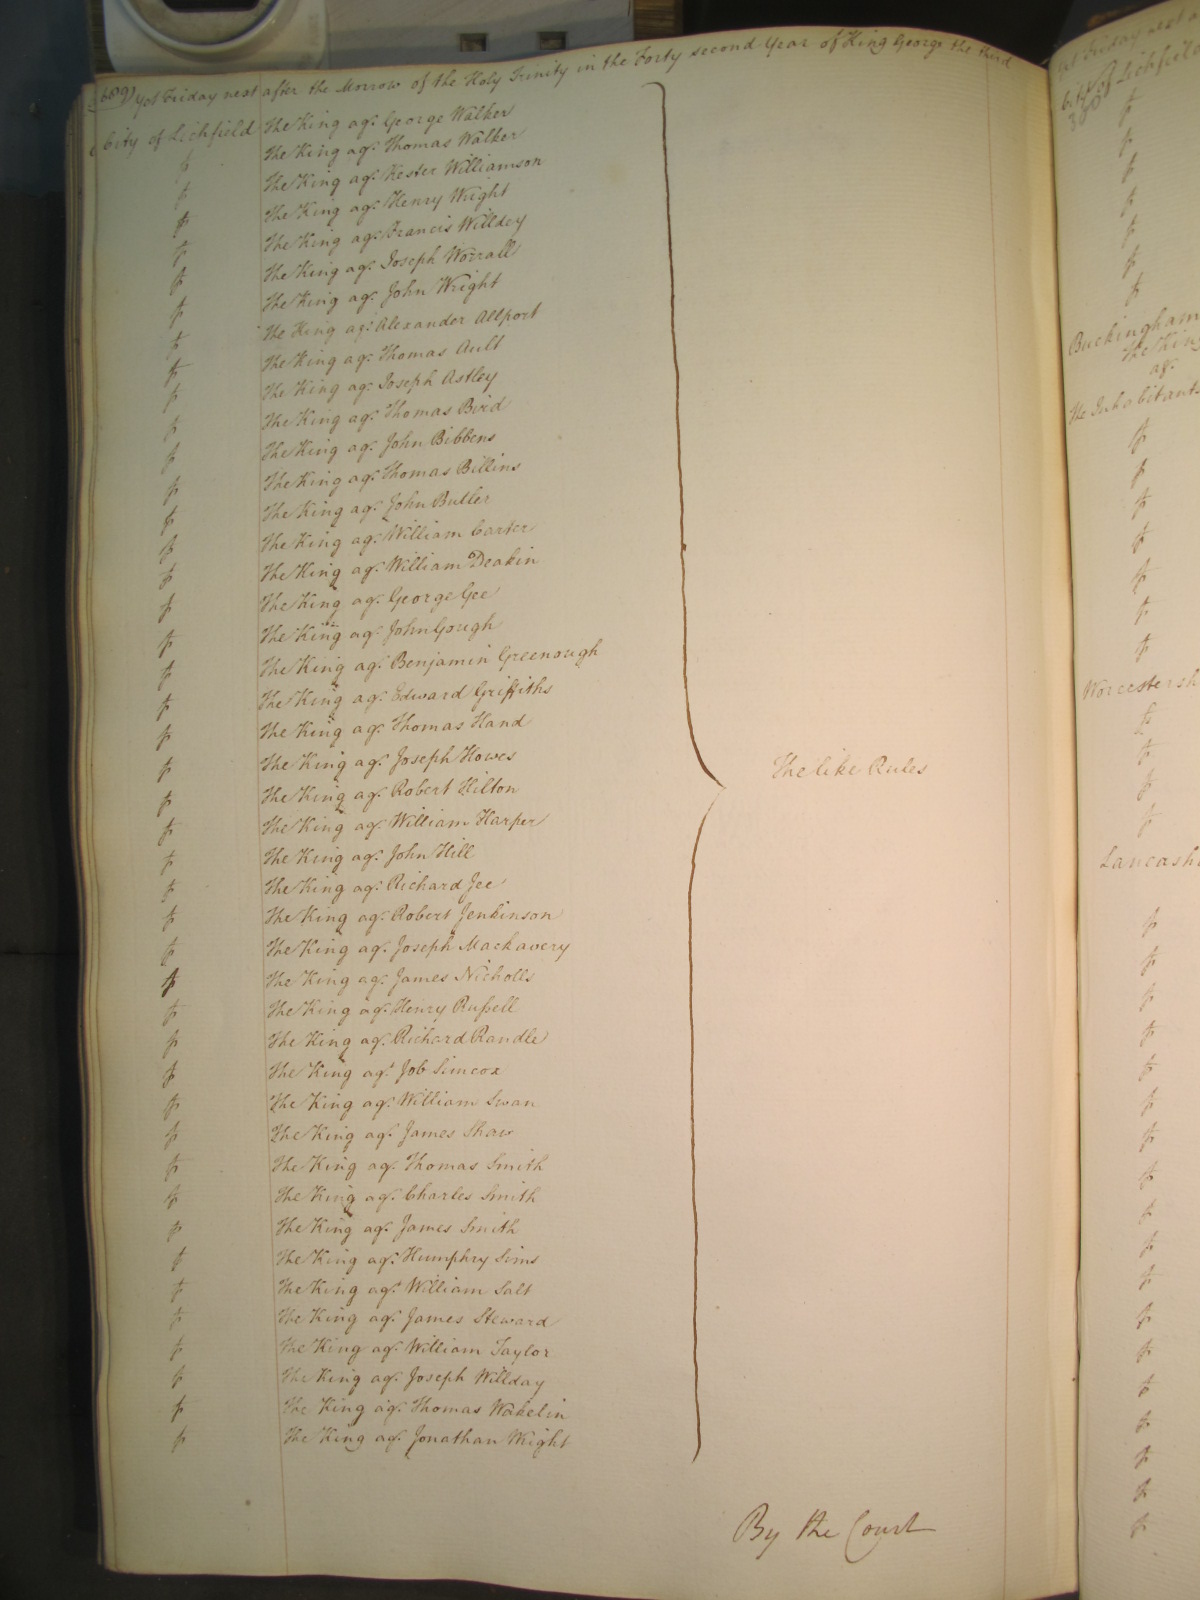 Yet Friday next after the Morrow of the Holy Trinity in the Forty second Year of King George the third
City of Lichfield The King agt. George Walker
The King agt. Thomas Walker
The King agt. Kester Williamson
The King agt. Henry Wright
The King agt. Francis Willdey
The King agt. Joseph Worrall
The King agt. John Wright
The King agt. Alexander Allport
The King agt. Thomas Ault
The King agt. Joseph Astley
The King agt. Thomas Bird
The King agt. John Bibbens
The King agt. Thomas Billins
The King agt. John Butler
The King agt. William Carter
The King agt. William Deakin
The King agt. George Gee
The King agt. John Gough
The King agt. Benjamin Greenough
The King agt. Edward Griffiths
The King agt. Thomas Hand
The King agt. Joseph Howes
The King agt. Robert Hilton
The King agt. William Harper
The King agt. John Hill
The King agt. Richard Jee
The King agt. Robert Jenkinson
The King agt. Joseph Mackavery
The King agt. James Nicholls
The King agt. Henry Russell
The King agt. Richard Randle
The King agt. Job Simcox
The King agt. William Swan
The King agt. James Shaw
The King agt. Thomas Smith
The King agt. Charles Smith
The King agt. James Smith
The King agt. Humphry Sims
The King agt. William Salt
The King agt. James Steward
The King agt. William Taylor
The King agt. Joseph Willday
The King agt. Thomas Wakelin
The King agt. Jonathan Wright
The like Rules
By the Court
Yet Friday next
City of Lichfield
Buckingham
The King
agt.
The Inhabitants
Worcestersh
Lancash